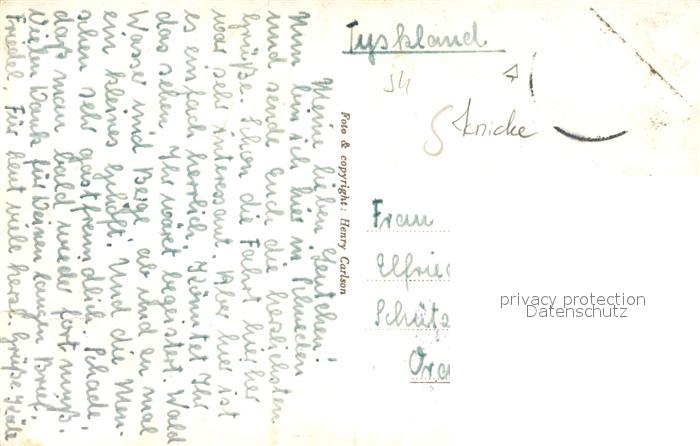 Meine lieben Leutchen!
Nun bin ich hier in Schweden
und sende Euch die herzlichsten
Grüße. Schon die Fahrt hierher
war sehr interessant. Aber hier ist
es einfach herrlich. Könntet Ihr
das sehen Ihr wäret begeistert. Wald
Wasser und Berge, ab und an mal
ein kleines Gehöft. Und die Men-
schen sehr gastfreundlich. Schade,
daß man bald wieder fort muß.
Vielen Dank für Deinen langen Brief,
Friedel. Für heut viele herzl. Grüße
Foto & copyright: Henry Carlson
Tyskland
Knicke
Frau
Elfrie
Schütz
Ora
privacy protection
Datenschutz